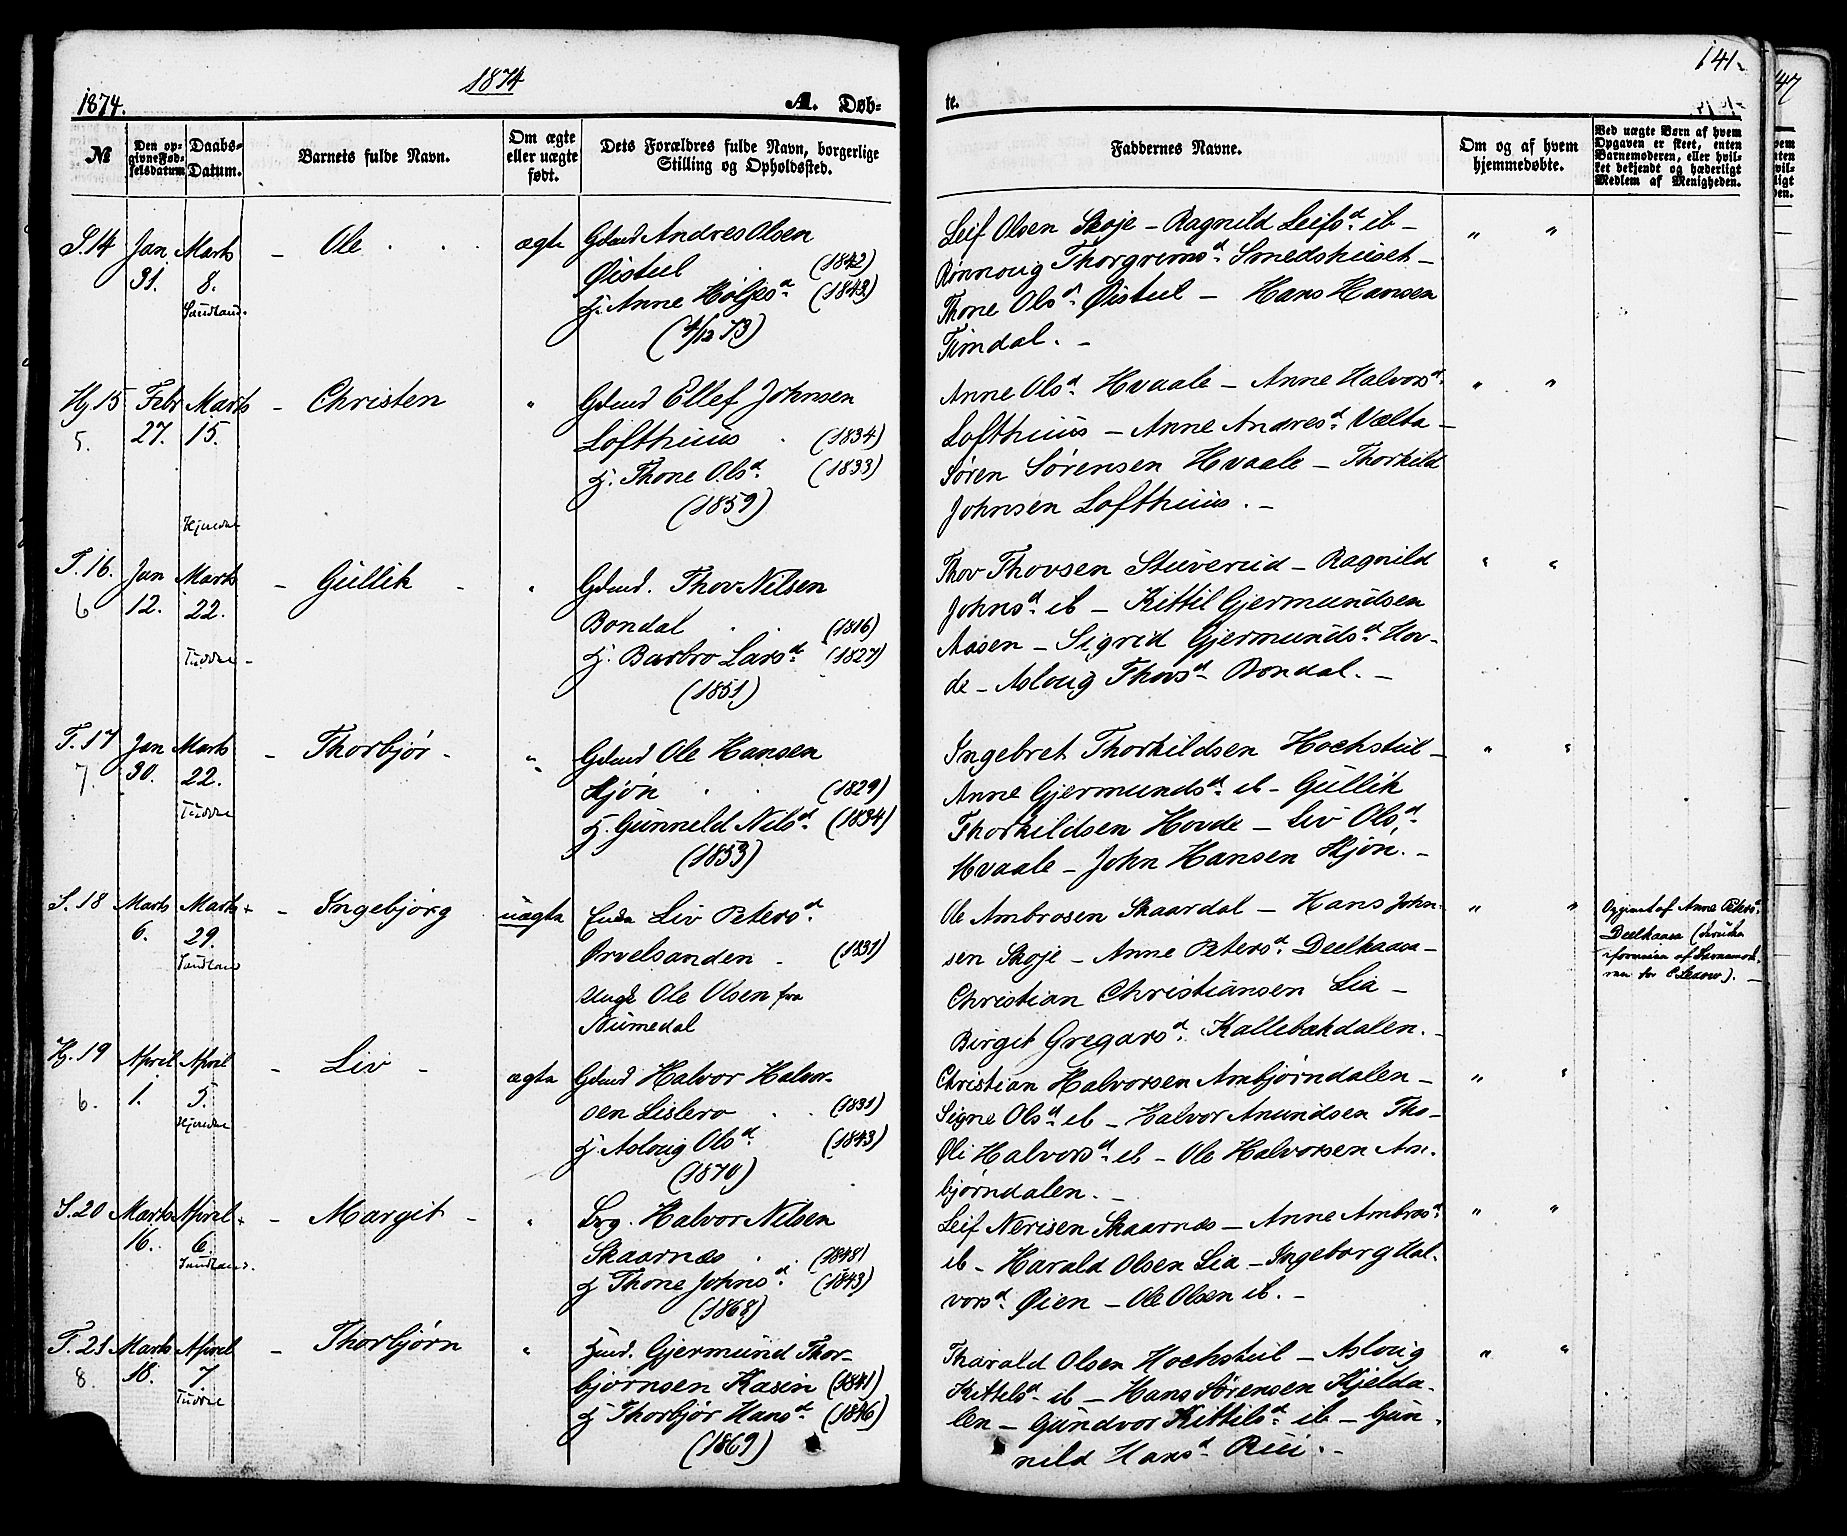 1874
141.
1874. A. Døb-
te.
№
Den op-
givne Fød-
selsdatum
Daabs-
Datum.
Barnets fulde Navn.
Om ægte
eller uægte
født.
Dets Forældres fulde Navn, borgerlige
Stilling og Opholdssted.
Faddernes Navne.
Om og af hvem
hjemmedøbte.
Ved uægte Børn af hvem
Opgaven er skeet, enten
Barnemoderen, eller hvil-
ket bekjendt og hæderligt
Medlem af Menigheden.
S. 14 Jan 31. Marts 8. Saudland.
Ole
ægte
Gdmd Andres Olsen
Øistul (1842)
h. Anne Høljesd. (1848)
(4/12 73)
Leif Olsen Skoje – Ragnild Leifsd. ib –
Rønnoug Thorgrimsd. Smedshuset –
Thone Olsd. Øistul – Hans Hansen
Timdal. –
Hj. 15 Febr 27. Marts 15.
5.
Hjerdal
Christen
"
Gdmd Ellef Johnsen
Lofthuus (1834)
h. Thone Olsd. (1833)
(1859)
Anne Olsd. Hvaale – Anne Halvorsd.
Lofthuus – Anne Andresd. Vælta –
Søren Sørensen Hvaale – Thorkild
Johnsen Lofthuus. –
T. 16. Jan 12. Marts 22.
6
Tuddal
Gullik
"
Gdmd. Thov Nilsen
Bondal (1816)
h. Barbro Larsd. (1827)
(1851)
Thov Thovsen Stuverud – Ragnild
Johnsd. ib – Kittil Gjermundsen
Aasen – Sigrid Gjermundsd. Hov-
de – Asloug Thovsd. Bondal. –
T. 17 Jan 30. Marts 22.
7.
Tuddal
Thorbjør
"
Gdmd Ole Hansen
Hjøn (1829)
h. Gunneld Nilsd. (1834)
(1853)
Ingebret Thorkildsen Hochstul –
Anne Gjermundsd. ib – Gullik
Thorkildsen Hovde – Liv Olsd.
Hvaale – John Hansen Hjøn. –
S. 18 Marts 6. Marts 29.
Saudland
Ingebjørg
uægte
Liv Petersd.
Ørvelsanden (1831)
Ungk Ole Olsen fra
Numedal
Ole Ambrosen Skaardal – Hans John-
sen Skoje – Anne Petersd. Deelkaasa –
Christian Christiansen Lia –
Birgit Gregarsd. Kallebækdalen. –
Opgivet af Anne Petersd.
Deelkaasa
Hj. 19 April 1. April 5.
6.
Hjerdal
Liv
ægte
Gdmd Halvor Halvor-
sen Lislero (1831)
h Asloug Olsd. (1843)
(1870)
Christian Halvorsen Ambjørndalen –
Signe Olsd. ib – Halvor Anundsen Tho-
Øli Halvorsd. ib – Ole Halvorsen Am-
bjørndalen. –
S. 20 Marts 16. April 6.
Saudland.
Margit
"
Brg. Halvor Nilsen
Skaarnæs (1848)
h Thone Johnsd. (1843)
(1868)
Leif Nerisen Skaarnæs – Anne Ambrosd.
ib – Harald Olsen Lia – Ingeborg Hal-
vorsd. Øien – Ole Olsen ib. –
T. 21 Marts 18. April 7
8.
Tuddal
Thorbjørn
"
Gjermund Thor-
bjørnsen Kasin (1841)
h Thorbjør Hansd. (1846)
(1869)
Tharald Olsen Hochstul – Asloug
Kittelsd. ib – Hans Sørensen Kjelda-
len – Gundvor Kittilsd. ib – Gun-
nild Hansd. Rui. –